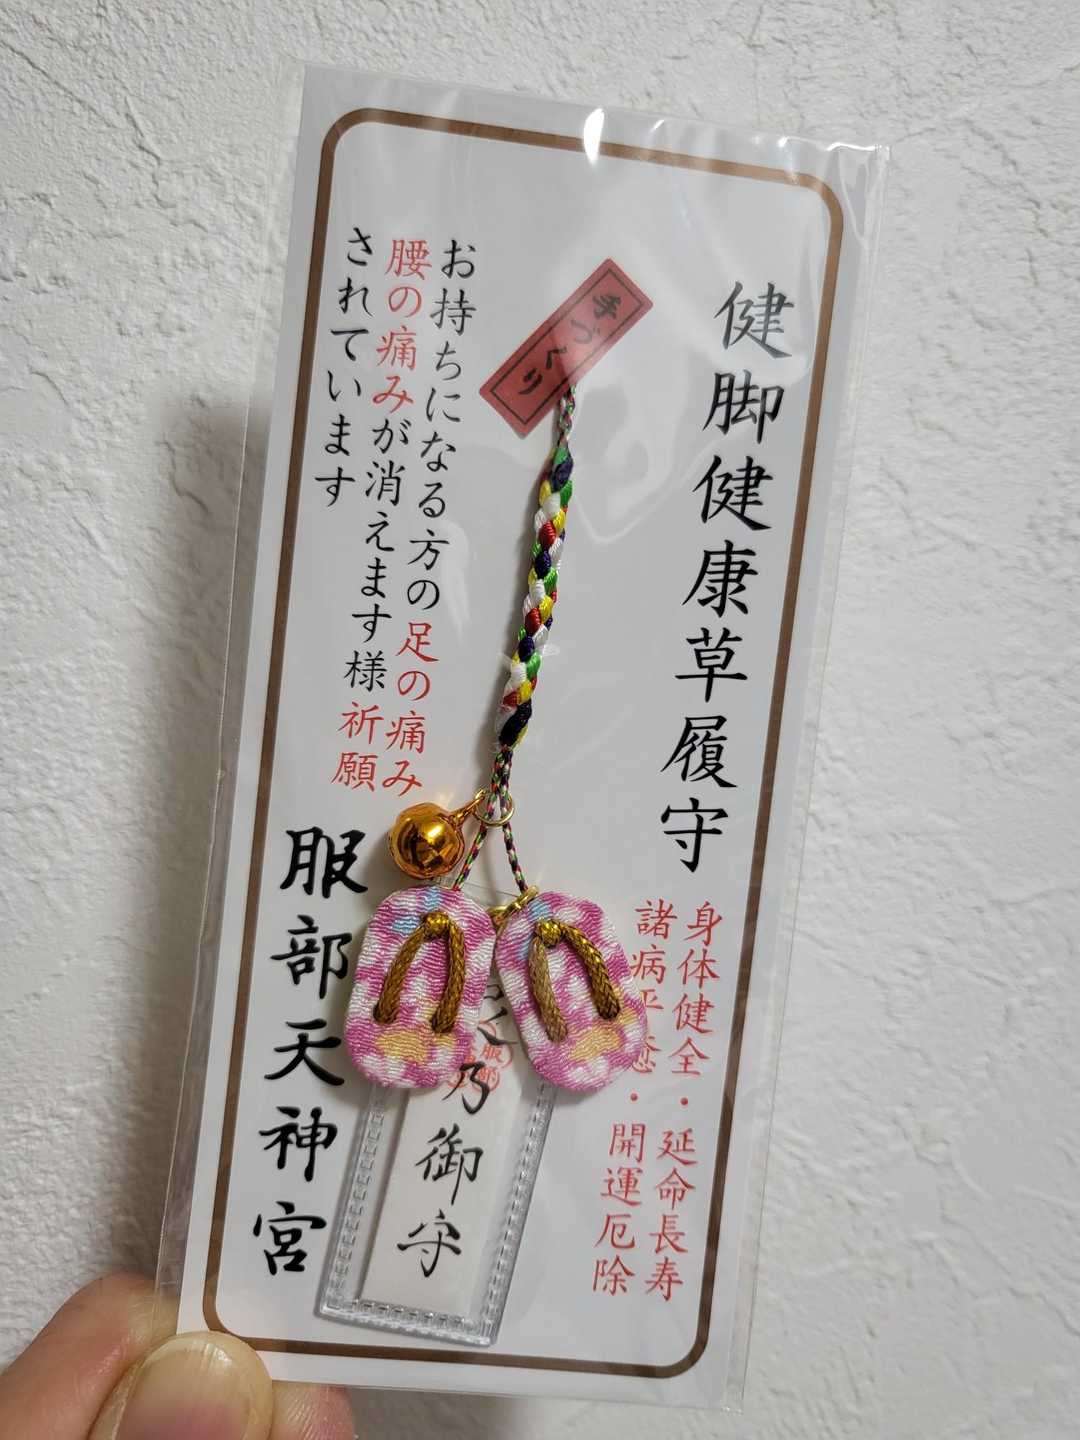 健脚健康草履守
身体健全・延命長寿
諸病平癒・開運厄除
手づくり
お持ちになる方の足の痛み
腰の痛みが消えます様祈願
されています
乃御守
服部天神宮